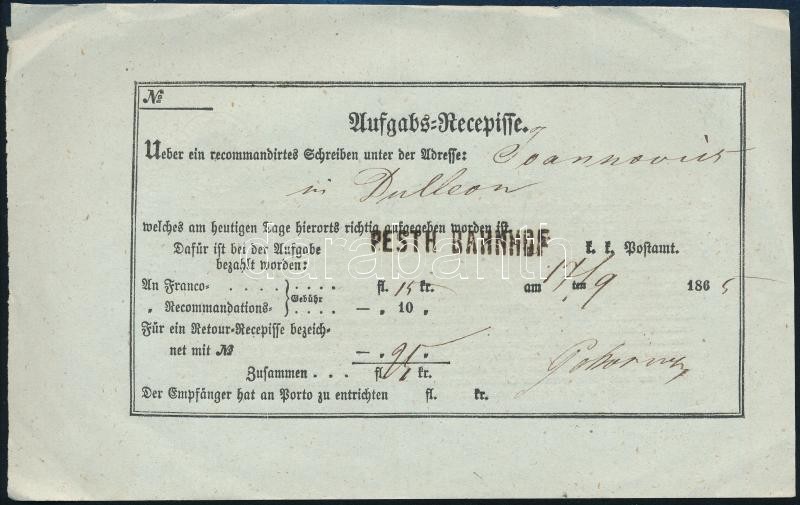 №
Aufgabs-Recepisse.
Ueber ein recommandirtes Schreiben unter der Adresse: Joannovics
in
welches am heutigen Tage hierorts richtig aufgegeben worden ist
Dafür ist bei der Aufgabe bezahlt worden:
PESTH BAHNHOF k. k. Postamt.
am 17/9 ten 1865
An Franco- . . . . . . . . fl. 15 kr.
„ Recommandations- . . . . — „ 10 „
Gebühr
Für ein Retour-Recepisse bezeich-
net mit № — „ „
Zusammen . . . fl. 25 kr.
Der Empfänger hat an Porto zu entrichten fl. kr.
darabanth